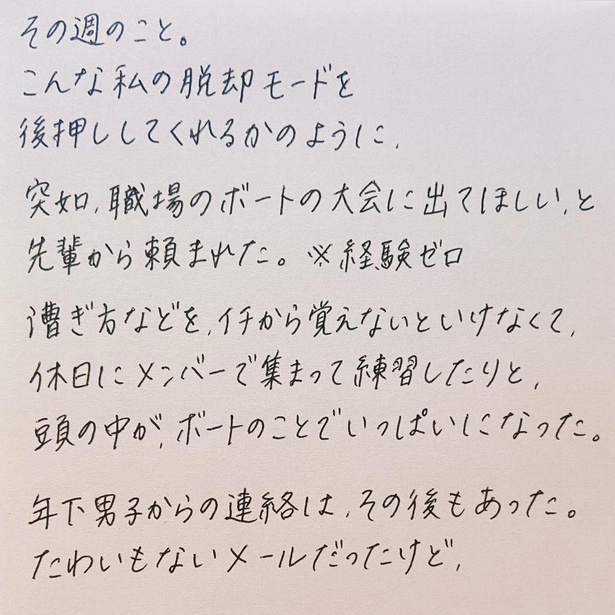 その週のこと。
こんな私の脱却モードを
後押ししてくれるかのように、
突如、職場のボートの大会に出てほしい、と
先輩から頼まれた。※経験ゼロ
漕ぎ方などを、イチから覚えないといけなくて、
休日にメンバーで集まって練習したりと、
頭の中が、ボートのことでいっぱいになった。
年下男子からの連絡は、その後もあった。
たわいもないメールだったけど、